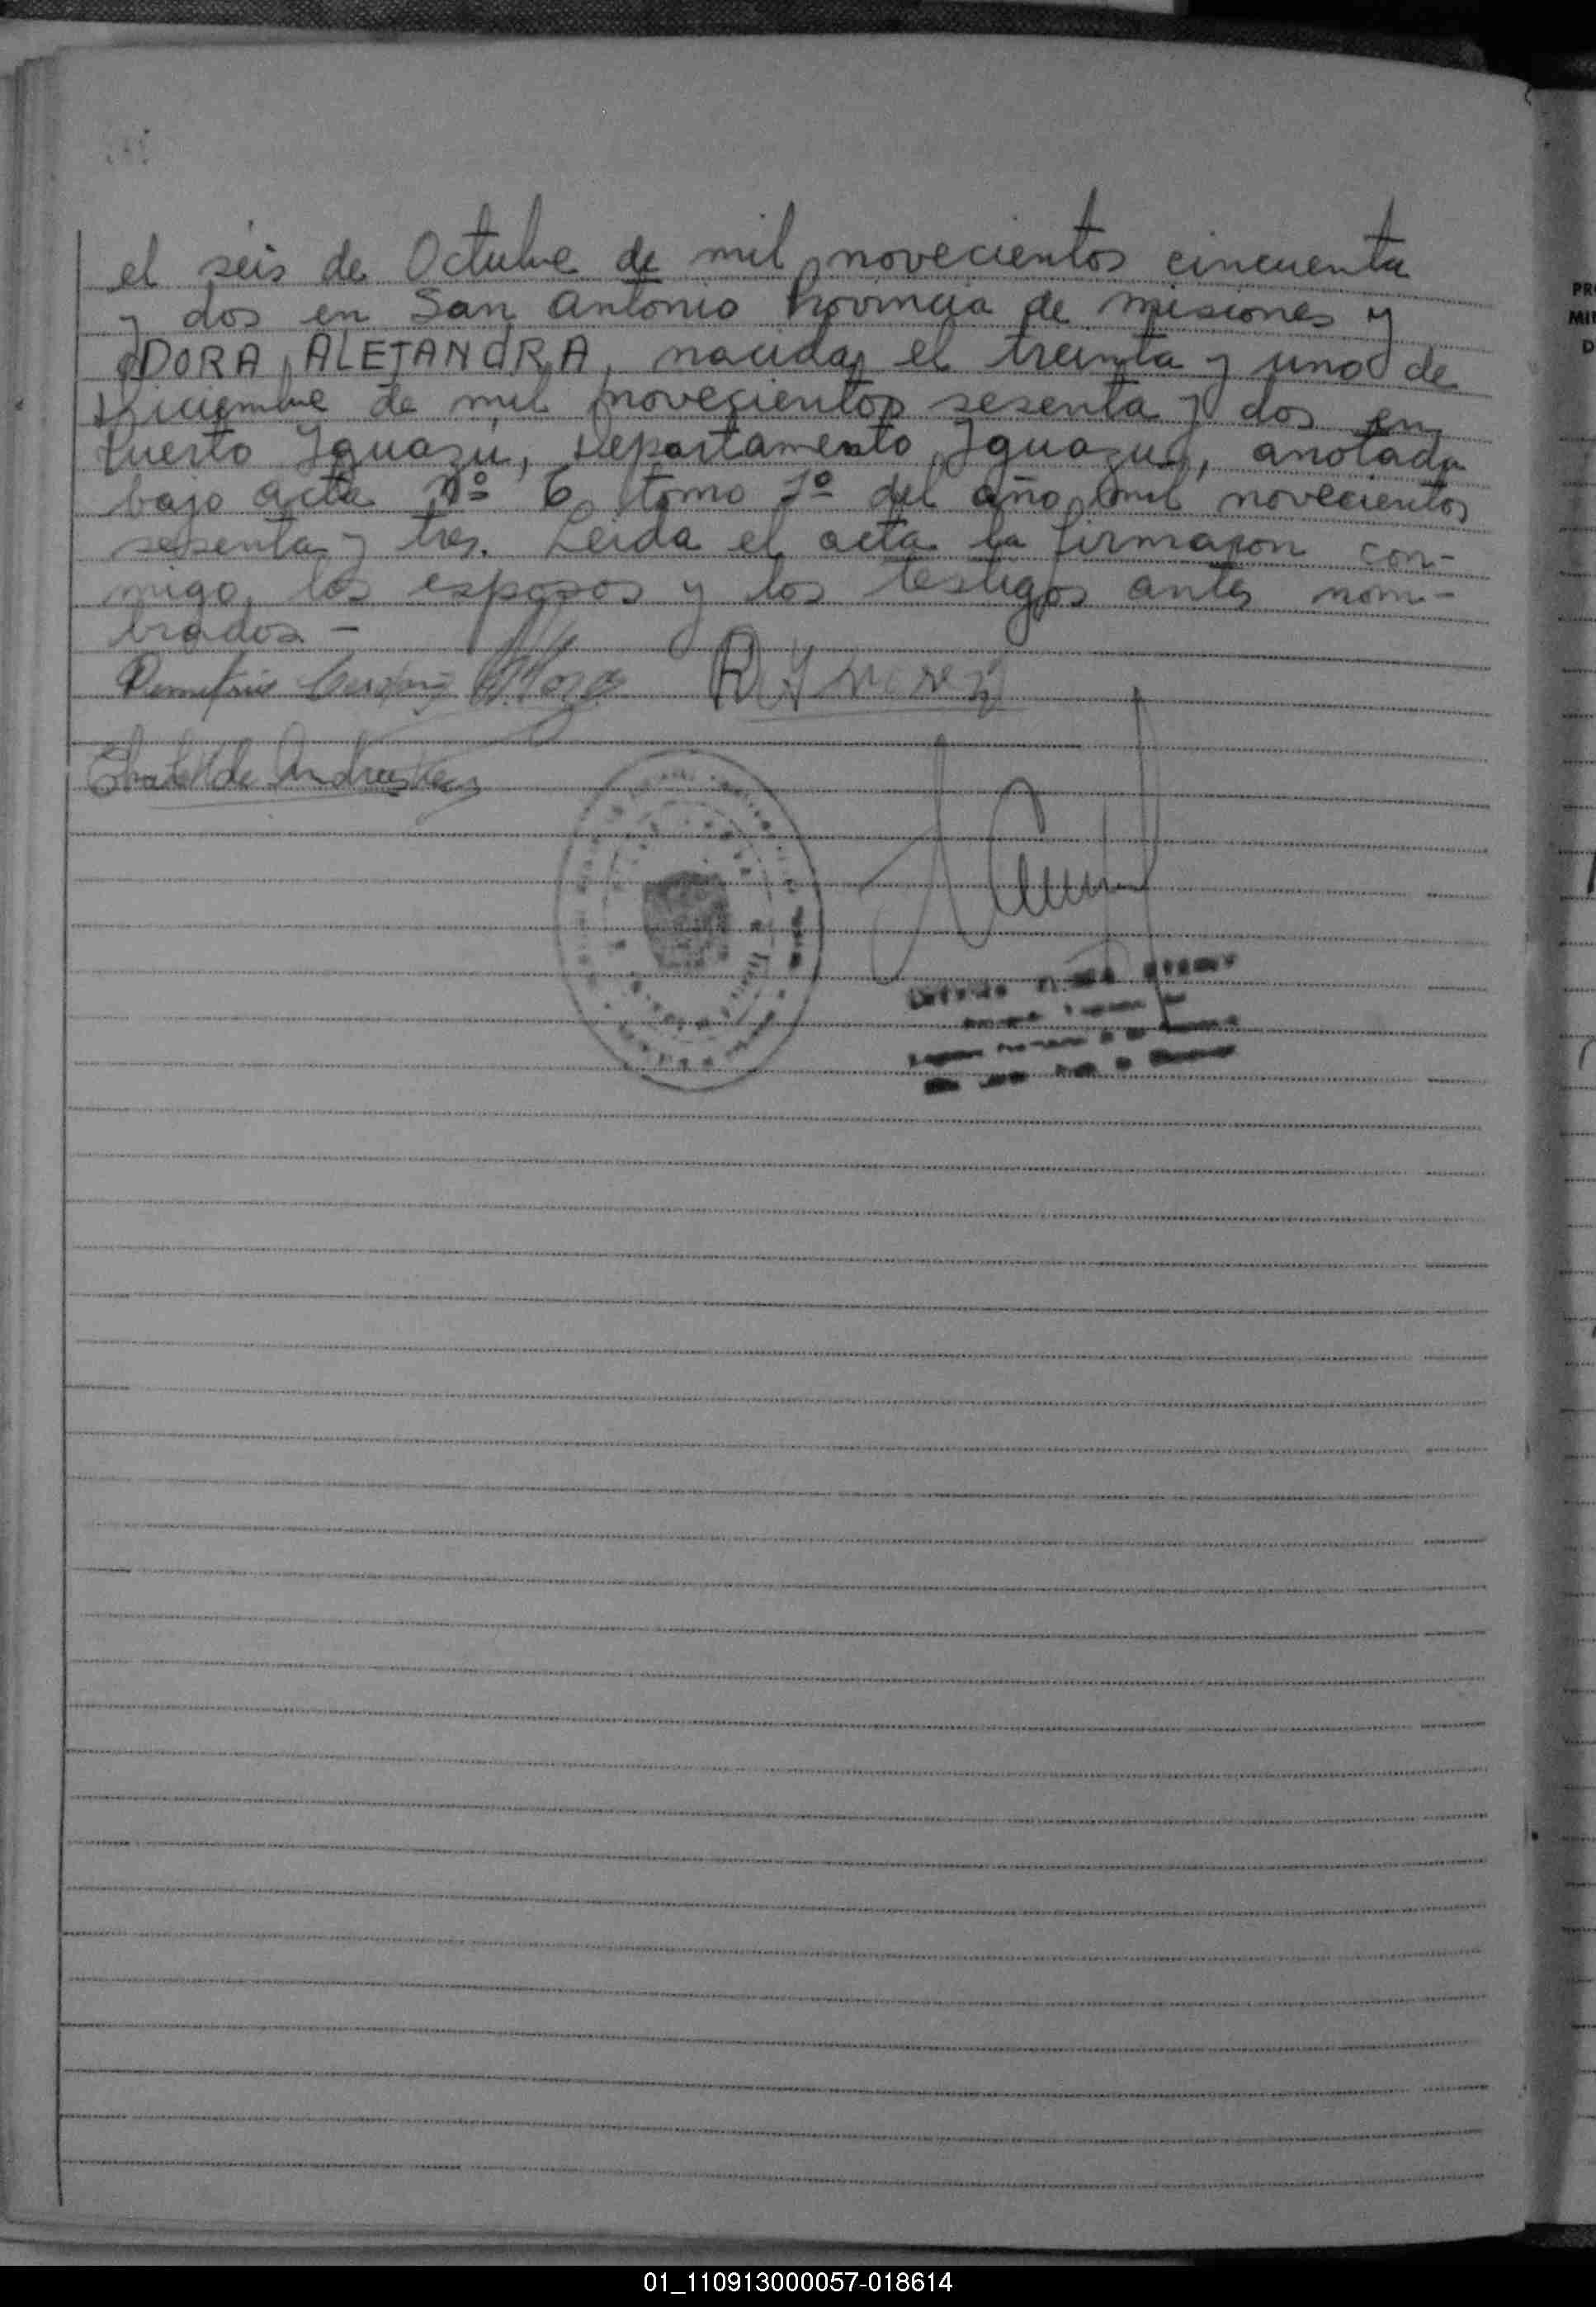 el seis de Octubre de mil novecientos cincuenta
y dos en San Antonio Provincia de Misiones y
DORA ALEJANDRA, nacida el treinta y uno de
Diciembre de mil novecientos sesenta y dos en
Puerto Iguazú, Departamento Iguazú, anotada
bajo acta Nº 6 tomo 1º del año mil novecientos
sesenta y tres. Leida el acta la firmaron con-
migo, los esposos y los testigos antes nom-
brados.-
PR
MI
D
01_110913000057-018614